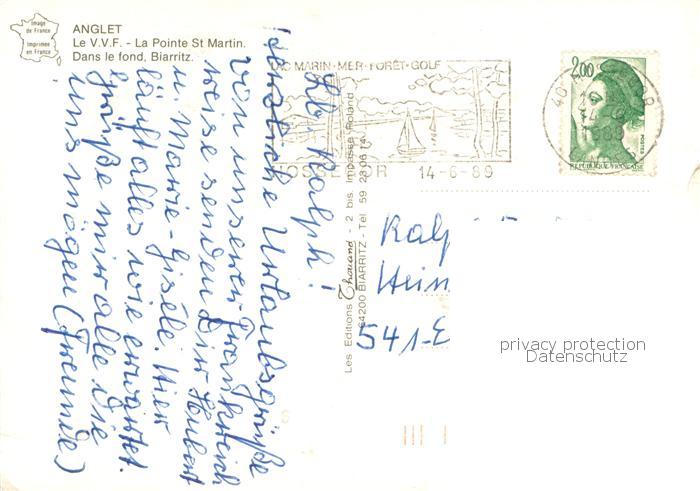 Image
de France
Imprimée
en France
ANGLET
Le V.V.F. - La Pointe St Martin.
Dans le fond, Biarritz.
LAC MARIN · MER · FORÊT · GOLF
HOSSEGOR 14-6-89
2,00
POSTES
REPUBLIQUE FRANÇAISE
Lb. Ralph!
Herzliche Urlaubsgrüße
von unserer Frankreich
reise senden Dir Hubert
u. Marie-Gisèle. Hier
läuft alles wie erwartet.
Grüße mir alle die
uns mögen (Freunde)
Les Editions Thouand - 2 bis, Impasse Roland
64200 BIARRITZ - Tél. 59 23 06 14
Ralp
Hein
541-E
privacy protection
Datenschutz